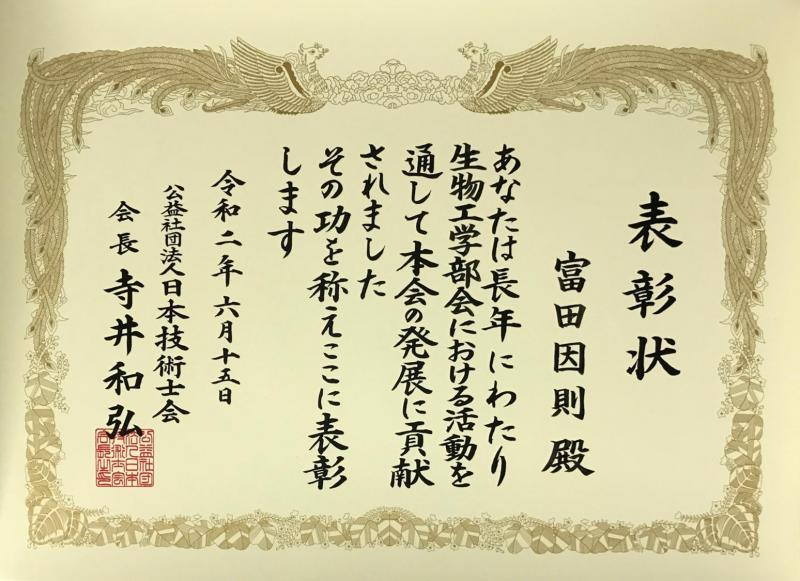 表彰状
富田因則殿
あなたは長年にわたり
生物工学部会における活動を
通して本会の発展に貢献
されました
その功を称えここに表彰
します
令和二年六月十五日
公益社団法人日本技術士会
会長寺井和弘